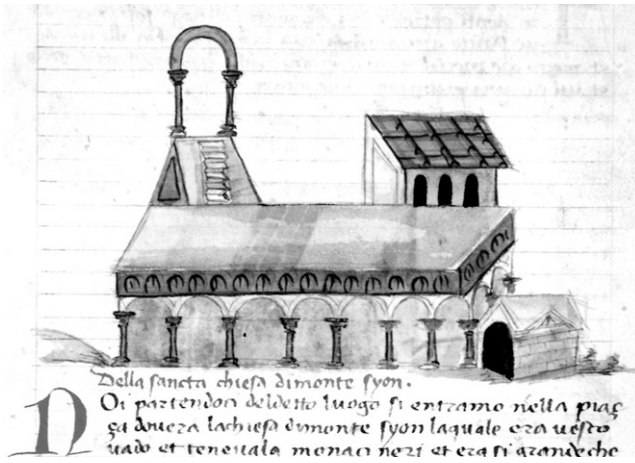 Della sancta chiesa dimonte syon.
Oi partendoci deldetto luogo si entramo nella piaç
ça dovera lachiesa dimonte syon laquale era vesco
vado et tenevala monaci neri et era si grande che